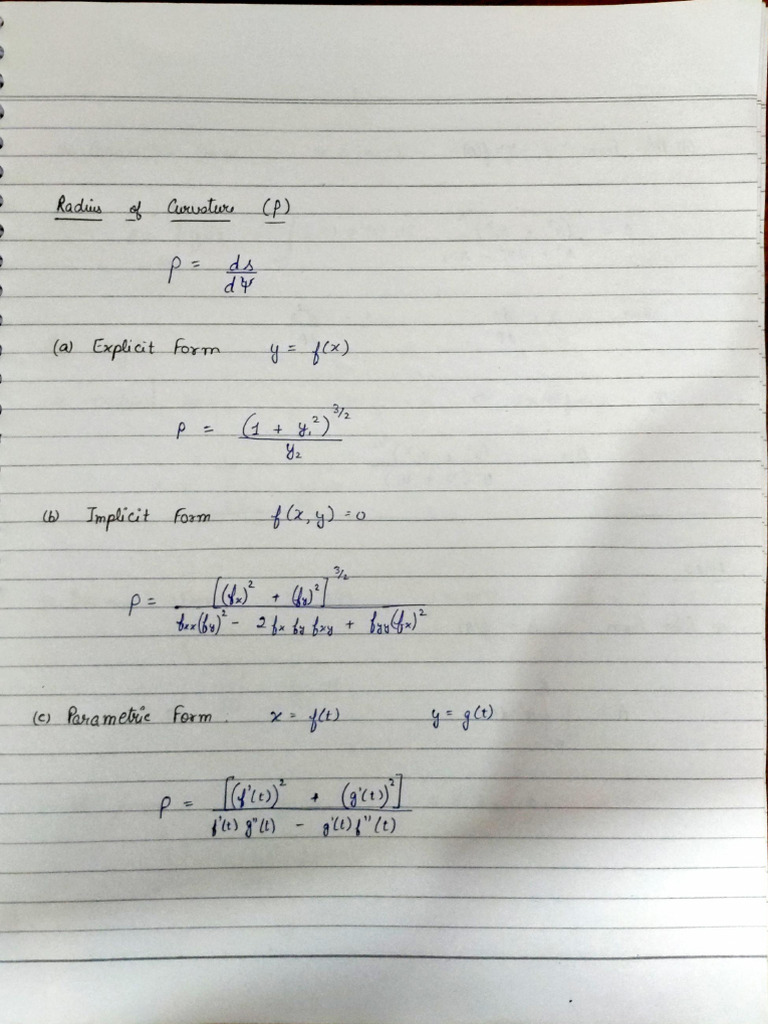 Radius of Curvature (ρ)
ρ = ds/dψ
(a) Explicit Form y = f(x)
ρ = (1 + y₁²)^3/2 / y₂
(b) Implicit Form f(x, y) = 0
ρ = [(fx)² + (fy)²]^3/2 / fxx(fy)² - 2 fx fy fxy + fyy(fx)²
(c) Parametric Form. x = f(t) y = g(t)
ρ = [(f'(t))² + (g'(t))²] / f'(t) g''(t) - g'(t) f''(t)